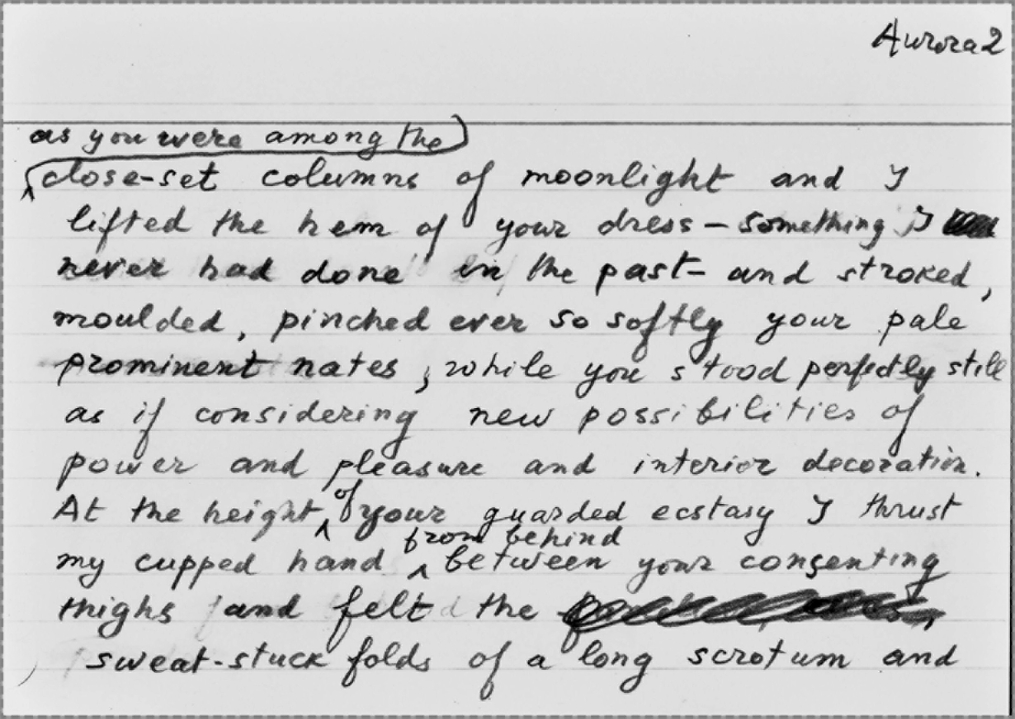 Aurora 2
as you were among the
close-set columns of moonlight and I
lifted the hem of your dress – something I
never had done in the past – and stroked,
moulded, pinched ever so softly your pale
prominent nates, while you stood perfectly still
as if considering new possibilities of
power and pleasure and interior decoration.
At the height of your guarded ecstasy I thrust
my cupped hand from behind between your consenting
thighs and felt the
sweat-stuck folds of a long scrotum and